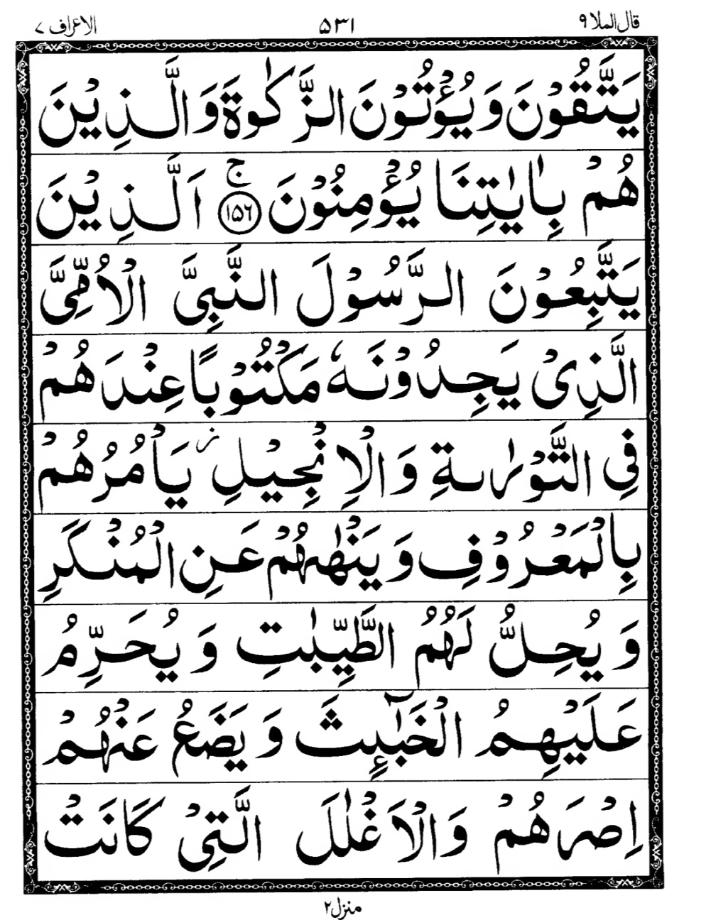 قال الملا ٩ ٥٣١ الاعراف ٧
يَتَّقُوْنَ وَيُؤْتُوْنَ الزَّكٰوةَ وَالَّذِيْنَ
هُمْ بِاٰيٰتِنَا يُؤْمِنُوْنَ ۚ ﴿١٥٦﴾ اَلَّذِيْنَ
يَتَّبِعُوْنَ الرَّسُوْلَ النَّبِيَّ الْاُمِّيَّ
الَّذِيْ يَجِدُوْنَهٗ مَكْتُوْبًا عِنْدَهُمْ
فِي التَّوْرٰىةِ وَالْاِنْجِيْلِ ز يَاْمُرُهُمْ
بِالْمَعْرُوْفِ وَيَنْهٰىهُمْ عَنِ الْمُنْكَرِ
وَيُحِلُّ لَهُمُ الطَّيِّبٰتِ وَيُحَرِّمُ
عَلَيْهِمُ الْخَبٰٓئِثَ وَيَضَعُ عَنْهُمْ
اِصْرَهُمْ وَالْاَغْلٰلَ الَّتِيْ كَانَتْ
منزل ٢